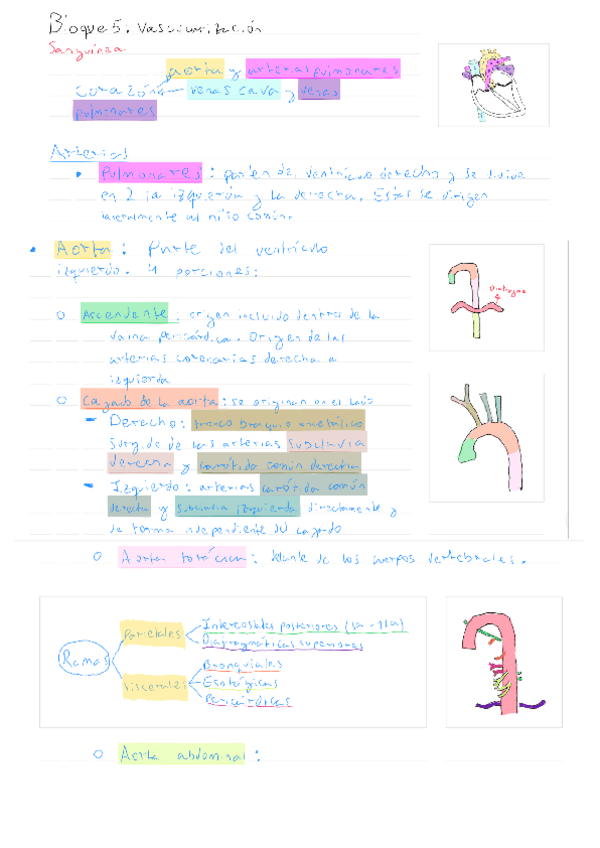 Bloque 5. Vascularización
Sanguínea
aorta y arterias pulmonares
Corazón venas cava y venas
pulmonares
Arterias
• Pulmonares: parten del ventrículo derecho y se divide
en 2 la izquierda y la derecha. Estas se dirigen
lateralmente al
• Aorta: Parte del ventrículo
izquierdo. 4 porciones:
Diafragma
o Ascendente: origen incluido dentro de la
vaina pericárdica. Origen de las
arterias coronarias derecha a
izquierda
o Cayado de la aorta: se originan en el lado
- Derecho: tronco braquio cefálico
surgide de las arterias subclavia
derecha y carótida común derecha
- Izquierdo: arterias carótida común
derecha y subclavia izquierda directamente y
de forma independiente del cayado
o Aorta torácica: delante de los cuerpos vertebrales.
Ramas
Parietales
Intercostales posteriores (3a - 11a)
Diafragmáticas superiores
Viscerales
Bronquiales
Esofágicas
Pericárdicas
o Aorta abdominal: